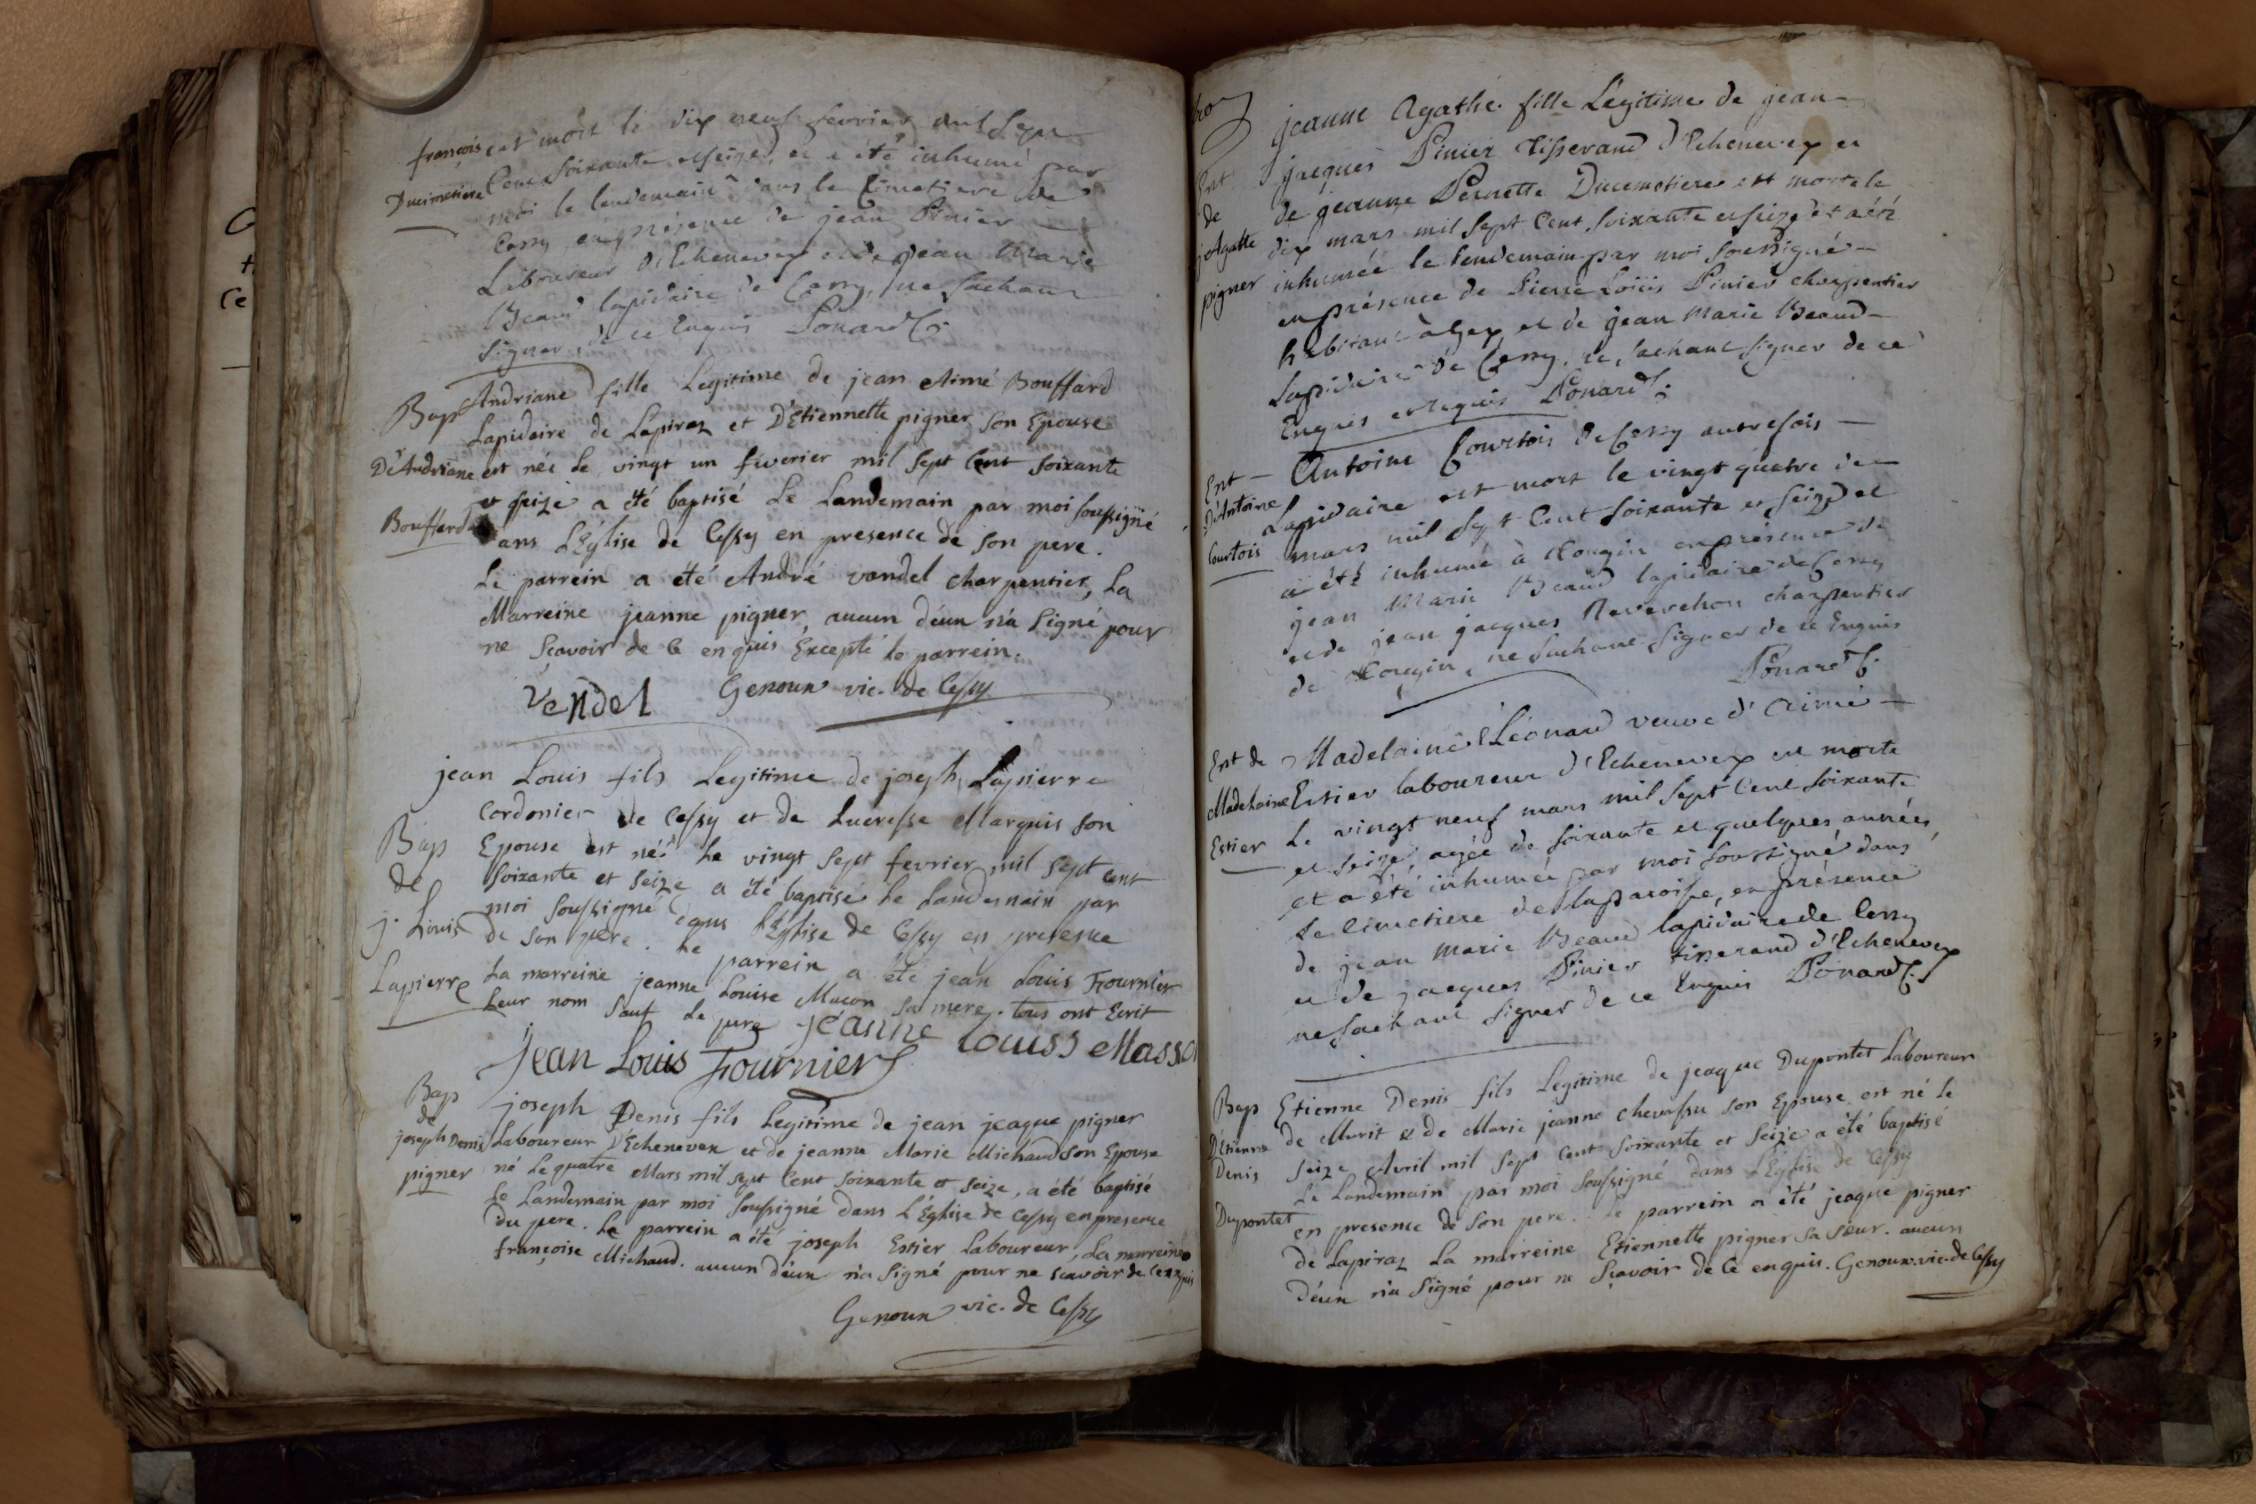 est mort le dix neuf fevrier mil sept
françois
Cent soixante et seize, et a été inhumé par
Ducimetiere
moi le lendemain dans le Cimetiere de
Cessy en présence de jean Pinier
Laboureur d'Echenevex et de jean Marie
Beaud lapidaire de Cessy, ne sachant
signer de ce Enquis Ponard C.
Bap
D'Andriane
Bouffard
Andriane fille Legitime de jean Aimé Bouffard
Lapidaire de Lapiraz et D'Etiennette pigner son Epouse
est née Le vingt un féverier mil sept Cent soixante
et seize a été baptisé Le Landemain par moi soussigné
dans L'Eglise de Cessy en presence de son pere.
Le parrein a été André vandel charpentier, La
Marreine jeanne pigner, aucun d'eux n'a signé pour
ne sçavoir de Ce enquis Excepté le parrein.
Vendel Genoux vic. de Cessy
Bap
de
j. Louis
Lapierre
jean Louis fils Legitime de joseph Lapierre
Cordonier de Cessy et de Lucresse Marquis son
Epouse est né Le vingt sept fevrier mil sept cent
soixante et seize a été baptisé Le Landemain par
moi soussigné dans L'Eglise de Cessy en presence
de son pere. Le parrein a été jean Louis Fournier
La marreine jeanne Louise Macon sa mere. tous ont Ecrit
Leur nom sauf Le pere jeanne Louiss Massa
Jean Louis Fournier
Bap
de
joseph Denis
pigner
joseph Denis fils Legitime de jean jeaque pigner
Laboureur D'Echenevex et de jeanne Marie Michaud son Epouse
né Le quatre Mars mil sept Cent soixante et seize, a été baptisé
Le Landemain par moi soussigné dans L'Eglise de Cessy en presence
du pere. Le parrein a été joseph Estier Laboureur, La marreine
françoise Michaud. aucun d'eux n'a signé pour ne sçavoir de Ce enquis
Genoux vic. de Cessy
Ent
de
j. Agatte
pigner
jeanne Agathe fille Légitime de jean
jacques Pinier tisserand d'Echenevex et
de jeanne Pernette Ducimetiere est morte le
dix mars mil sept Cent soixante et seize et a été
inhumée le lendemain par moi soussigné
en présence de Pierre Loüis Pinier charpentier
habitant à Gex et de jean Marie Beaud
Lapidaire de Cessy, ne sachant signer de ce
Enquis et requis Ponard C.
Ent
D'Antoine
Courtois
Antoine Courtois de Cessy autrefois
Lapidaire est mort le vingt quatre de
mars mil sept Cent soixante et seize et
a été inhumé à Tougin en présence de
jean Marie Beaud lapidaire de Cessy
et de jean jacques Reverchon charpentier
de Tougin, ne sachant signer de ce Enquis
Ponard C.
Ent de
Madelaine
Estier
Madelaine Léonard veuve d'Aimé
Estier laboureur d'Echenevex est morte
Le vingt neuf mars mil sept Cent soixante
et seize, agée de soixante et quelques années,
et a été inhumée par moi soussigné dans
Le Cimetiere de la paroisse, en présence
de jean Marie Beaud lapidaire de Cessy
et de jacques Pinier tisserand d'Echenevex
ne sachant signer de ce Enquis Ponard C.
Bap
D'Etienne
Denis
Dupontet
Etienne Denis fils Legitime de jeaque Dupontet Laboureur
de Murit et de Marie jeanne chevassu son Epouse est né le
seize Avril mil sept Cent soixante et seize a été baptisé
Le Landemain par moi soussigné dans L'Eglise de Cessy
en presence de son pere. Le parrein a été jeaque pigner
de Lapiraz La marreine Etiennette pigner sa sœur. aucun
d'eux n'a signé pour ne sçavoir de Ce enquis. Genoux vic. de Cessy